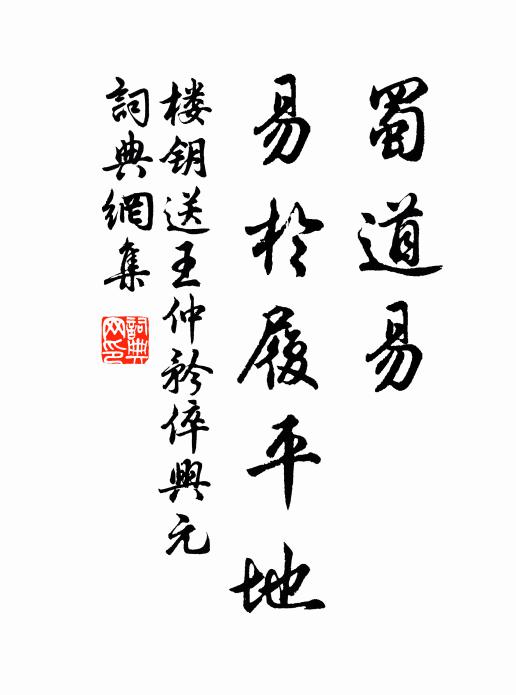 蜀道易
易於履平地
楼钥送王仲矜倅興元
詞典網集
詞典网印